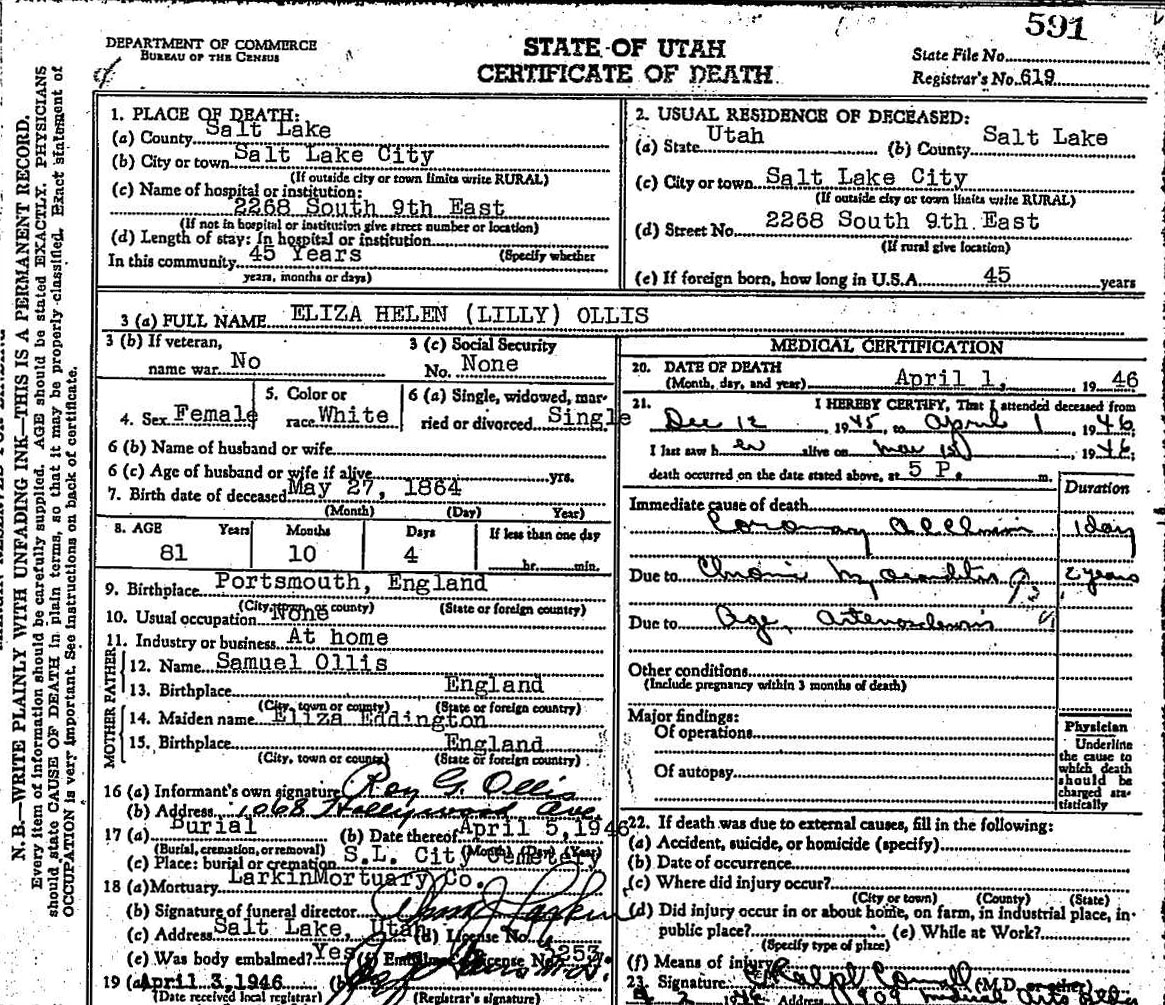 591
DEPARTMENT OF COMMERCE
BUREAU OF THE CENSUS
STATE OF UTAH
CERTIFICATE OF DEATH
State File No.
Registrar's No. 619
N. B.—WRITE PLAINLY WITH UNFADING INK—THIS IS A PERMANENT RECORD.
Every item of information should be carefully supplied. AGE should be stated EXACTLY. PHYSICIANS
should state CAUSE OF DEATH in plain terms, so that it may be properly classified. Exact statement of
OCCUPATION is very important. See instructions on back of certificate.
1. PLACE OF DEATH:
(a) County Salt Lake
(b) City or town Salt Lake City
(If outside city or town limits write RURAL)
(c) Name of hospital or institution:
2268 South 9th East
(If not in hospital or institution give street number or location)
(d) Length of stay: In hospital or institution
(Specify whether
In this community 45 Years
years, months or days)
2. USUAL RESIDENCE OF DECEASED:
(a) State Utah (b) County Salt Lake
(c) City or town Salt Lake City
(If outside city or town limits write RURAL)
(d) Street No. 2268 South 9th East
(If rural give location)
(e) If foreign born, how long in U.S.A. 45 years
3 (a) FULL NAME ELIZA HELEN (LILLY) OLLIS
3 (b) If veteran, name war No
3 (c) Social Security No. None
4. Sex Female
5. Color or race White
6 (a) Single, widowed, married or divorced Single
6 (b) Name of husband or wife
6 (c) Age of husband or wife if alive yrs.
7. Birth date of deceased May 27, 1864
(Month) (Day) Year)
8. AGE Years Months Days If less than one day
81 10 4 hr. min.
9. Birthplace Portsmouth, England
(City, town, or county) (State or foreign country)
10. Usual occupation None
11. Industry or business At home
FATHER
12. Name Samuel Ollis
13. Birthplace England
(City, town or county) (State or foreign country)
MOTHER
14. Maiden name Eliza Eddington
15. Birthplace England
(City, town or county) (State or foreign country)
16 (a) Informant's own signature Roy G. Ollis
(b) Address 1068 Hollywood Ave
17 (a) Burial (b) Date thereof April 5, 1946
(Burial, cremation, or removal) (Month) (Day) (Year)
(c) Place: burial or cremation S.L. City Cemetery
18 (a) Mortuary LarkinMortuary Co.
(b) Signature of funeral director Larkin
(c) Address Salt Lake, Utah (d) License No.
(e) Was body embalmed? Yes (f) Embalmer's License No. 253
19 (a) April 3, 1946 (b)
(Date received local registrar) (Registrar's signature)
MEDICAL CERTIFICATION
20. DATE OF DEATH
(Month, day, and year) April 1, 19 46
21. I HEREBY CERTIFY, That I attended deceased from
Dec 12, 1945, to April 1, 1946;
I last saw her alive on Mar 1946;
death occurred on the date stated above, at 5 P. m.
Duration
Immediate cause of death
Coronary occlusion 1 day
Due to Chronic myocarditis 2 years
Due to Age, Arteriosclerosis
Other conditions
(Include pregnancy within 3 months of death)
Major findings:
Of operations
Of autopsy
Physician
Underline
the cause to
which death
should be
charged sta-
tistically
22. If death was due to external causes, fill in the following:
(a) Accident, suicide, or homicide (specify)
(b) Date of occurrence
(c) Where did injury occur?
(City or town) (County) (State)
(d) Did injury occur in or about home, on farm, in industrial place, in
public place? (e) While at Work?
(Specify type of place)
(f) Means of injury
23. Signature Ralph (M.D. or other)
Address 909 Medical Arts Bld.